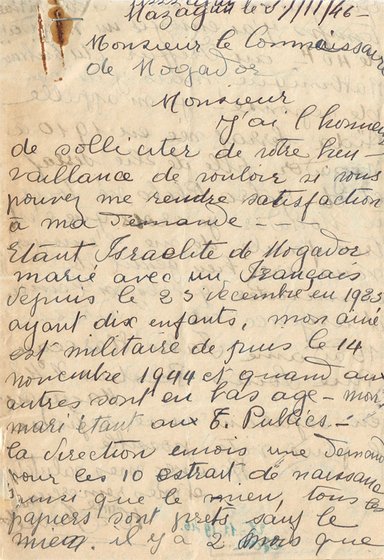 Mazagan le 5/11/46-
Monsieur le Commissaire
de Mogador
Monsieur
J'ai l'honneur
de solliciter de votre bien-
vaillance de vouloir si vous
pouvez me rendre satisfaction
à ma demande - - -
Etant Israelite de Mogador
marié avec un Français
depuis le 23 decembre en 1923
ayant dix enfants, mon ainé
est militaire depuis le 14
novembre 1944 et quand aux
autres sont en bas age - mon
mari étant aux T. Publics. -
la direction envois une demand
pour les 10 extrait de naissance
ainsi que le mien, tous les
papiers sont prets sauf le
mien. il y a 2 mois que